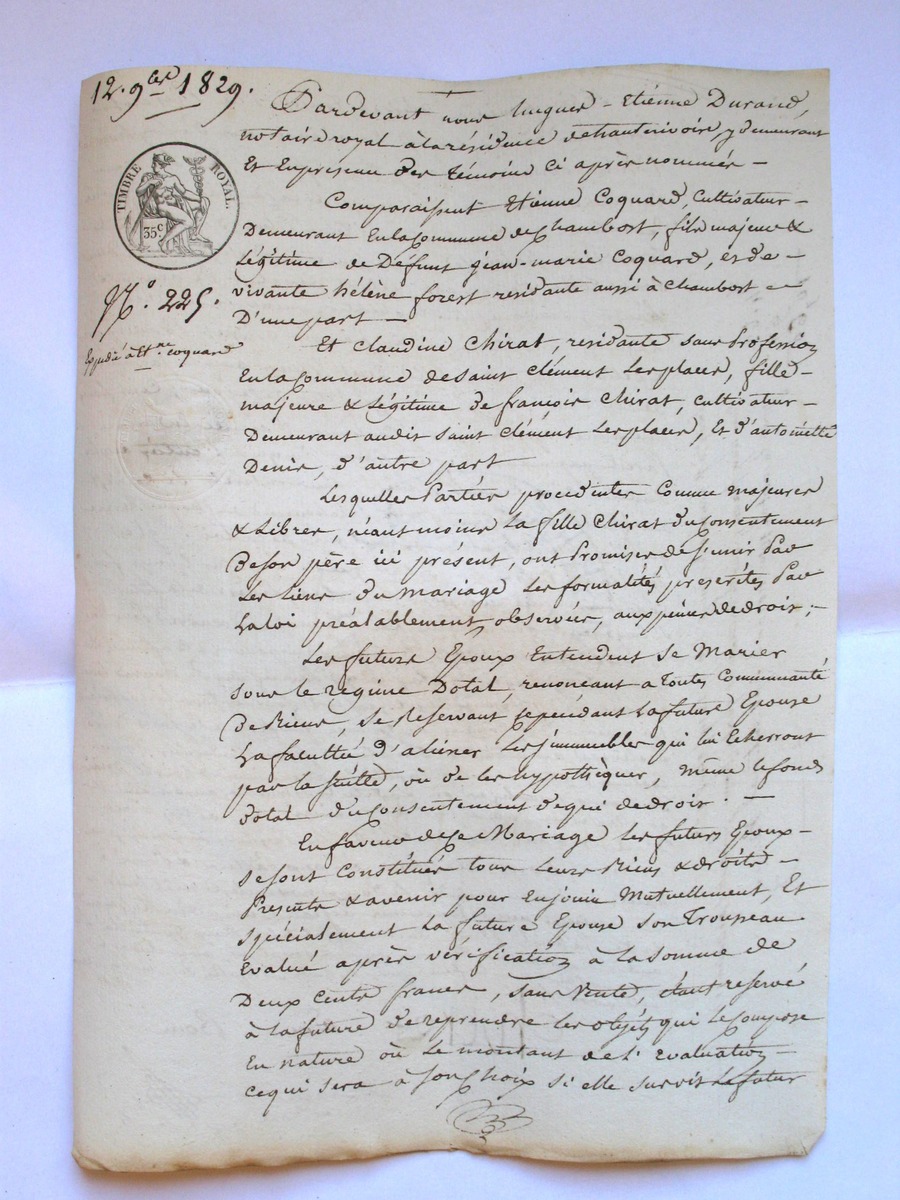 12. 9bre 1829.
TIMBRE ROYAL.
35c
No. 225.
Expédié à Et.ne Coquard
Pardevant nous hugues - Etiénne Durand,
notaire royal à la résidence de hauterivoire, y demeurant
Et En présence des témoins Ci après nommés -
Comparaissent Etienne Coquard, Cultivateur -
Demeurant En la Commune de Chambost, fils majeur &
Légitime de Défunt Jean-marie Coquard, et de -
vivante hélène forest residante aussi à Chambost -
D'une part -
Et Claudine Chirat, residante sans Profession
En la Commune de Saint Clément Les places, fille -
majeure & Légitime de françois Chirat, Cultivateur -
Demeurant audit Saint Clément Les places, Et d'antoinètte
Denis, d'autre part
Lesquelles Parties procedentes Comme majeures
& Libres, néantmoins La fille Chirat du Consentement
De son père ici présent, ont Promises de S'unir Par
Les liens du Mariage Les formalités prescrites Par
La Loi préalablement observées, aux peines de droit ; -
Les futurs Epoux Entendent se Marier
sous le regime Dotal, renonçant a Toutes Communauté
De Biens, se Reservant cependant La future Epouse
La facultée d'aliéner Les jmmeubles qui lui Echerront
par La suitte, où de les hypothèquer, même le fonds
dotal du Consentement de qui de droit. -
En faveur de Ce Mariage les futurs Epoux -
se sont Constitués tous Leurs Biens & droits -
Presents & avenir pour En jouir Mutuellement, Et
spécialement La future Epouse son Trousseau
Evalué après vérification à la somme de
Deux Cents francs, sans Vente, étant reservé
à la future de reprendre les objéts qui Le Compose
En nature où Le montant de L'evaluation -
ce qui sera à son Choix si elle survit Le futur